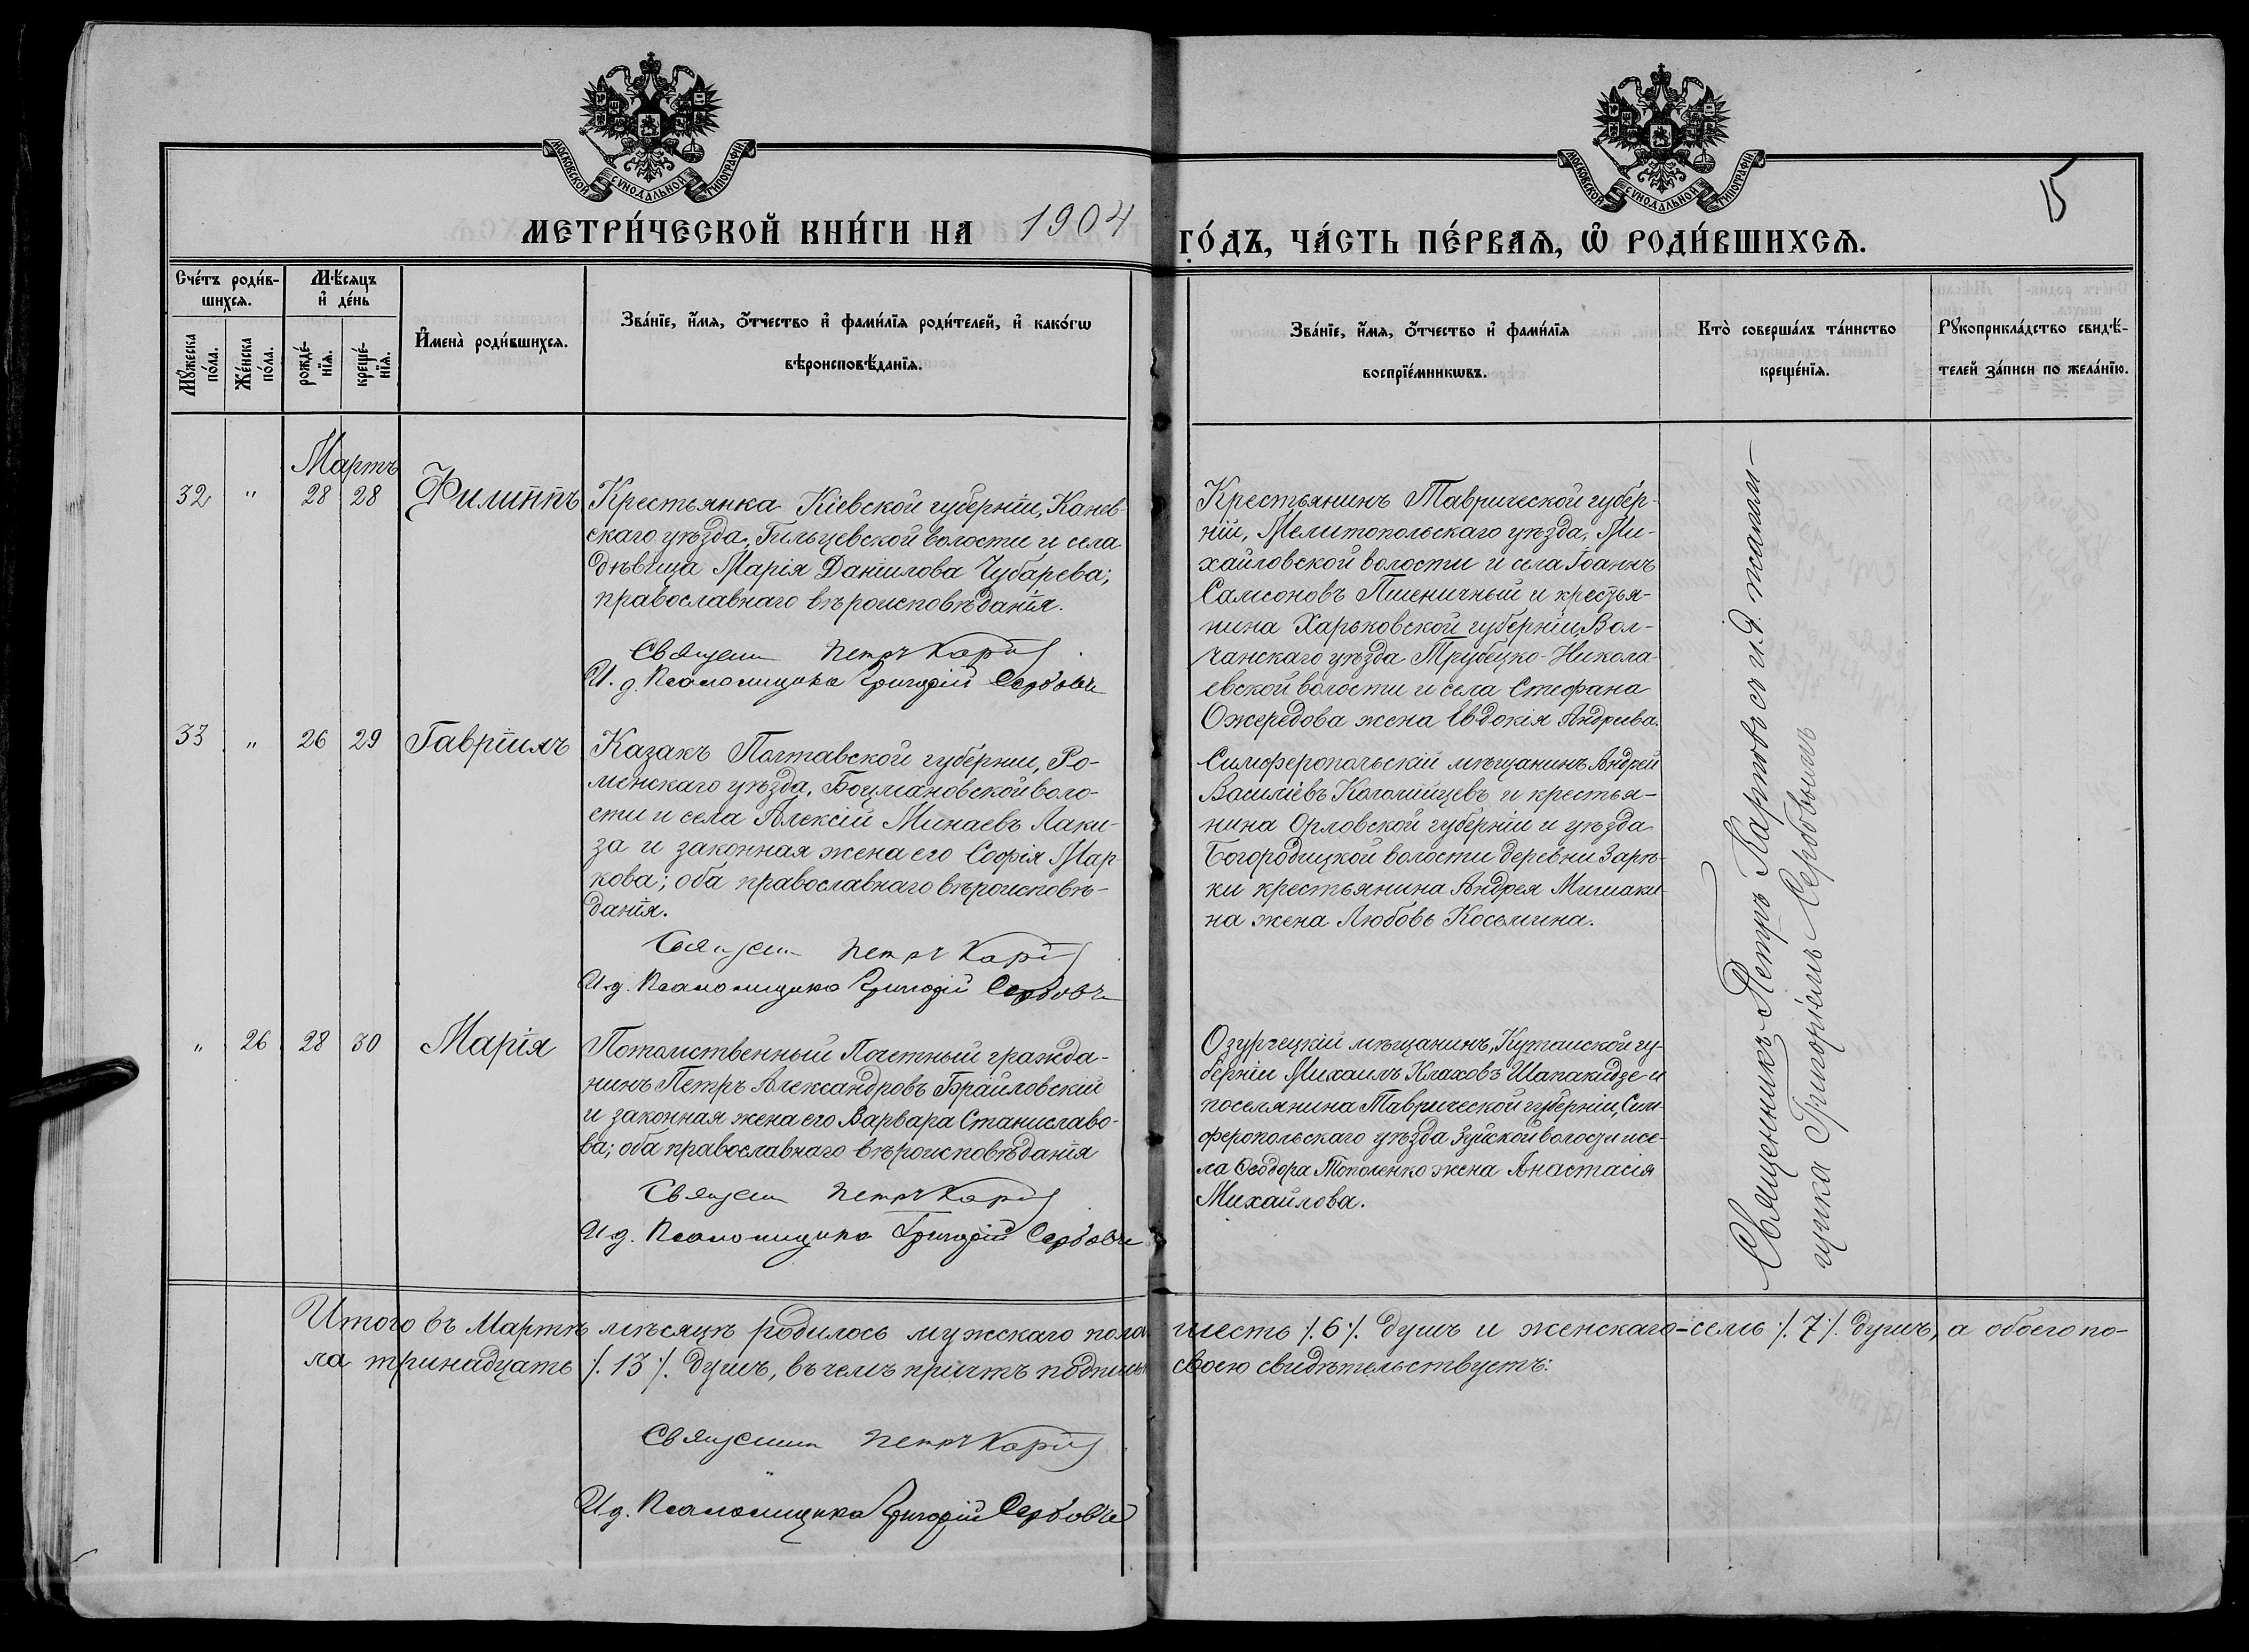 МОСКОВСКОЙ СУНОДАЛЬНОЙ ТИПОГРАФІИ
МОСКОВСКОЙ СУНОДАЛЬНОЙ ТИПОГРАФІИ
15
МЕТРИ́ЧЕСКОЙ КНИ́ГИ НА 1904 ГО́ДЪ, ЧА́СТЬ ПЕ́РВАѦ, Ѡ҆ РОДИ́ВШИХСѦ.
Сче́тъ роди́в-
шихсѧ.
Мꙋжеска
по́ла.
Же́нска
по́ла.
Мѣ́сѧцъ
и҆ де́нь
рожде́-
нїѧ.
креще́-
нїѧ.
И҆мена̀ роди́вшихсѧ.
Зва́нїе, и҆́мѧ, ѻ҆́тчество и҆ фами́лїѧ роди́телей, и҆ како́гѡ
вѣроисповѣ́данїѧ.
Зва́нїе, и҆́мѧ, ѻ҆́тчество и҆ фами́лїѧ
воспрїе́мникѡвъ.
Кто̀ соверша́лъ та́инство
креще́нїѧ.
Рꙋкоприкла́дство свидѣ́-
телей за́писи по жела́нїю.
Мартъ
32 " 28 28 Филиппъ
Крестьянка Кіевской губерніи, Канев-
скаго уѣзда, Гильцевской волости и села
дѣвица Марія Даніилова Чубарева;
православнаго вѣроисповѣданія.
Священ Петръ Карп
И. д. Псаломщика Григорій Сербовъ
Крестьянинъ Таврической губер-
ніи, Мелитопольскаго уѣзда, Ми-
хайловской волости и села Іоаннъ
Самсоновъ Пшеничный и крестья-
нина Харьковской губерніи, Вол-
чанскаго уѣзда Трубецко-Никола-
евской волости и села Стефана
Ожередова жена Евдокія Андреева.
33 " 26 29 Гавріилъ
Казакъ Полтавской губерніи, Ро-
менскаго уѣзда, Боцмановской воло-
сти и села Алексій Минаевъ Лаки-
за и законная жена его Софія Мар-
кова; оба православнаго вѣроисповѣ-
данія.
Священ Петръ Карп
И. д. Псаломщика Григорій Сербовъ
Симферопольскій мѣщанинъ Андрей
Василіевъ Коломійцевъ и крестья-
нина Орловской губерніи и уѣзда
Богородицкой волости деревни Зарѣ-
ки крестьянина Андрея Мишаки-
на жена Любовь Косьмина.
" 26 28 30 Марія
Потомственный Почетный гражда-
нинъ Петръ Александровъ Браиловскій
и законная жена его Варвара Станиславо-
ва; оба православнаго вѣроисповѣданія
Священ Петръ Карп
И. д. Псаломщика Григорій Сербовъ
Озургецкій мѣщанинъ, Кутаиской гу-
берніи Михаилъ Клаховъ Шапакидзе и
поселянина Таврической губерніи, Сим-
феропольскаго уѣзда Зуйской волости и се-
ла Ѳеодора Тополенко жена Анастасія
Михайлова.
Священникъ Петръ Карповъ съ и.д. псалом-
щика Григоріемъ Сербовымъ
Итого въ Мартѣ мѣсяцѣ родилось мужскаго пола шесть /.6./. душъ и женскаго - семь /.7./. душъ, а обоего по-
ла тринадцать /.13./. душъ, въ чемъ причтъ подписью своею свидѣтельствуетъ:
Священник Петръ Карп
И. д. Псаломщика Григорій Сербовъ